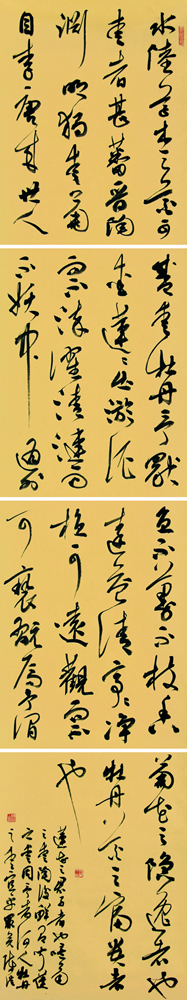 水陸草木之花可
愛者甚蕃晉陶
淵明獨愛菊
自李唐來世人
甚愛牡丹予獨
愛蓮之出淤泥
而不染濯清漣而
不妖中通外
直不蔓不枝香
遠益清亭亭淨
植可遠觀而不
可褻翫焉予謂
菊花之隱逸者也
牡丹花之富貴者
也
蓮花之君子者也噫菊
之愛陶後鮮有聞蓮
之愛同予者何人牡丹
之愛宜乎眾矣